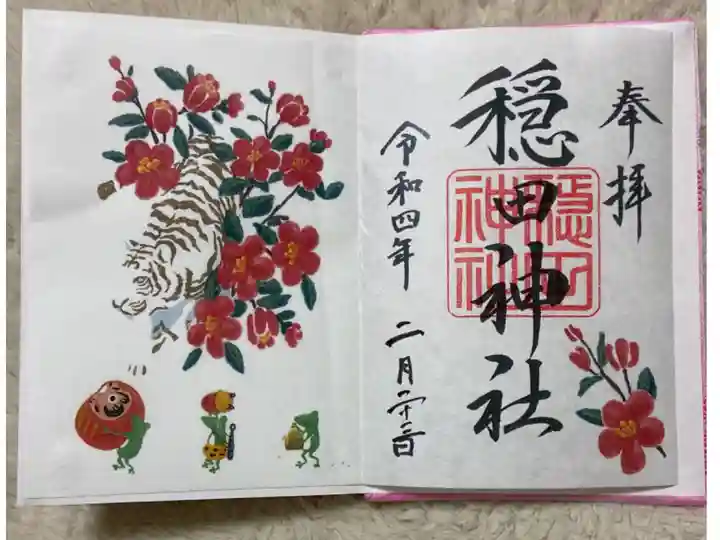 奉拝
穏田神社
穏田
神社
令和四年 二月二十三日